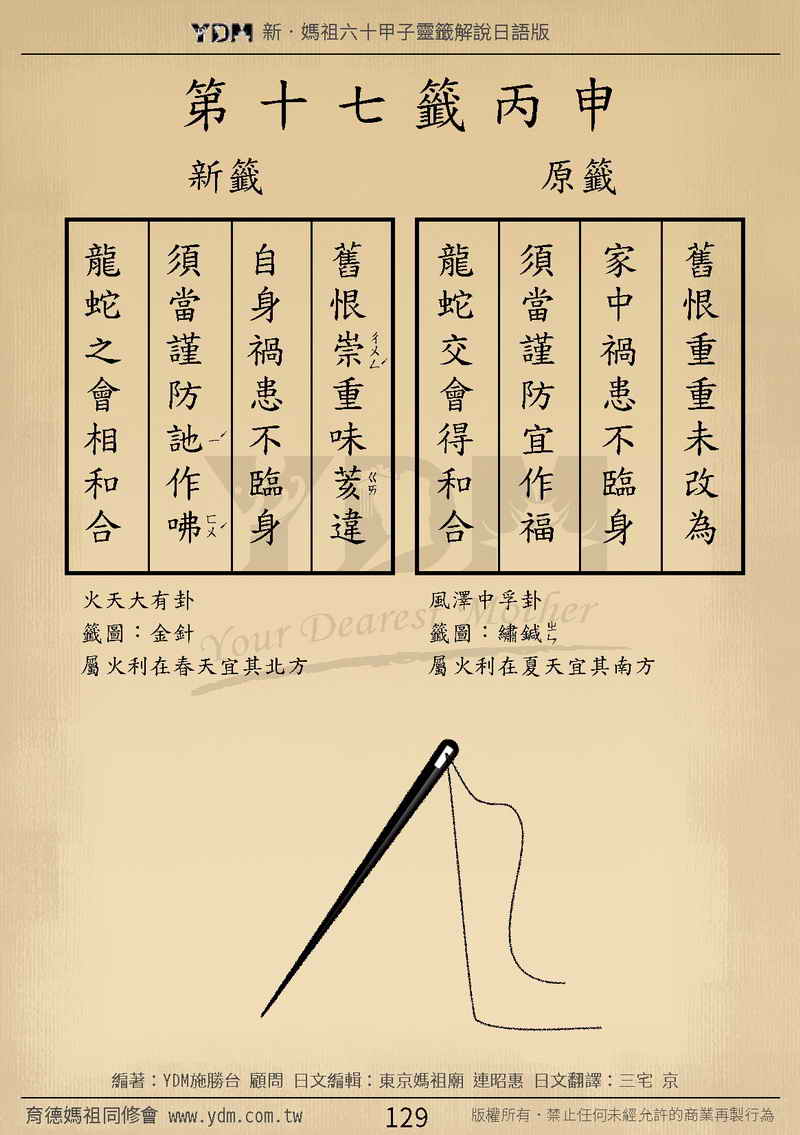 YDM 新．媽祖六十甲子靈籤解說日語版
第十七籤丙申
原籤
舊恨重重未改為
家中禍患不臨身
須當謹防宜作福
龍蛇交會得和合
風澤中孚卦
籤圖：繡鍼ㄓㄣ
屬火利在夏天宜其南方
新籤
舊恨崇ㄔㄨㄥˊ重味荄ㄍㄞ違
自身禍患不臨身
須當謹防訑ㄧˊ作咈ㄈㄨˊ
龍蛇之會相和合
火天大有卦
籤圖：金針
屬火利在春天宜其北方
YDM
Your Dearest Mother
編著：YDM施勝台 顧問 日文編輯：東京媽祖廟 連昭惠 日文翻譯：三宅 京
育德媽祖同修會 www.ydm.com.tw 129 版權所有．禁止任何未經允許的商業再製行為